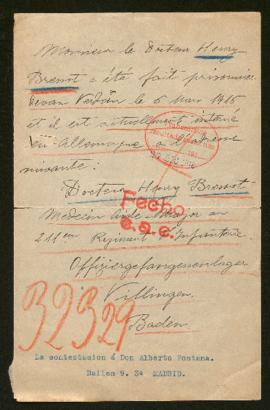 Monsieur le Docteur Henry
Bremot a été fait prisonnier
devant Verdun le 6 Mars 1916
et il est actuellement interné
en Allemagne à l'adresse
suivante:
Docteur Henry Bremot
Médecin Aide-Major au
211em Régiment d'Infanterie
Offiziergefangenenlager
Villingen
Baden
Fecho
e.a.c.
32321
La contestacion á Don Alberto Fontana.
Bailen 9. 3º MADRID.